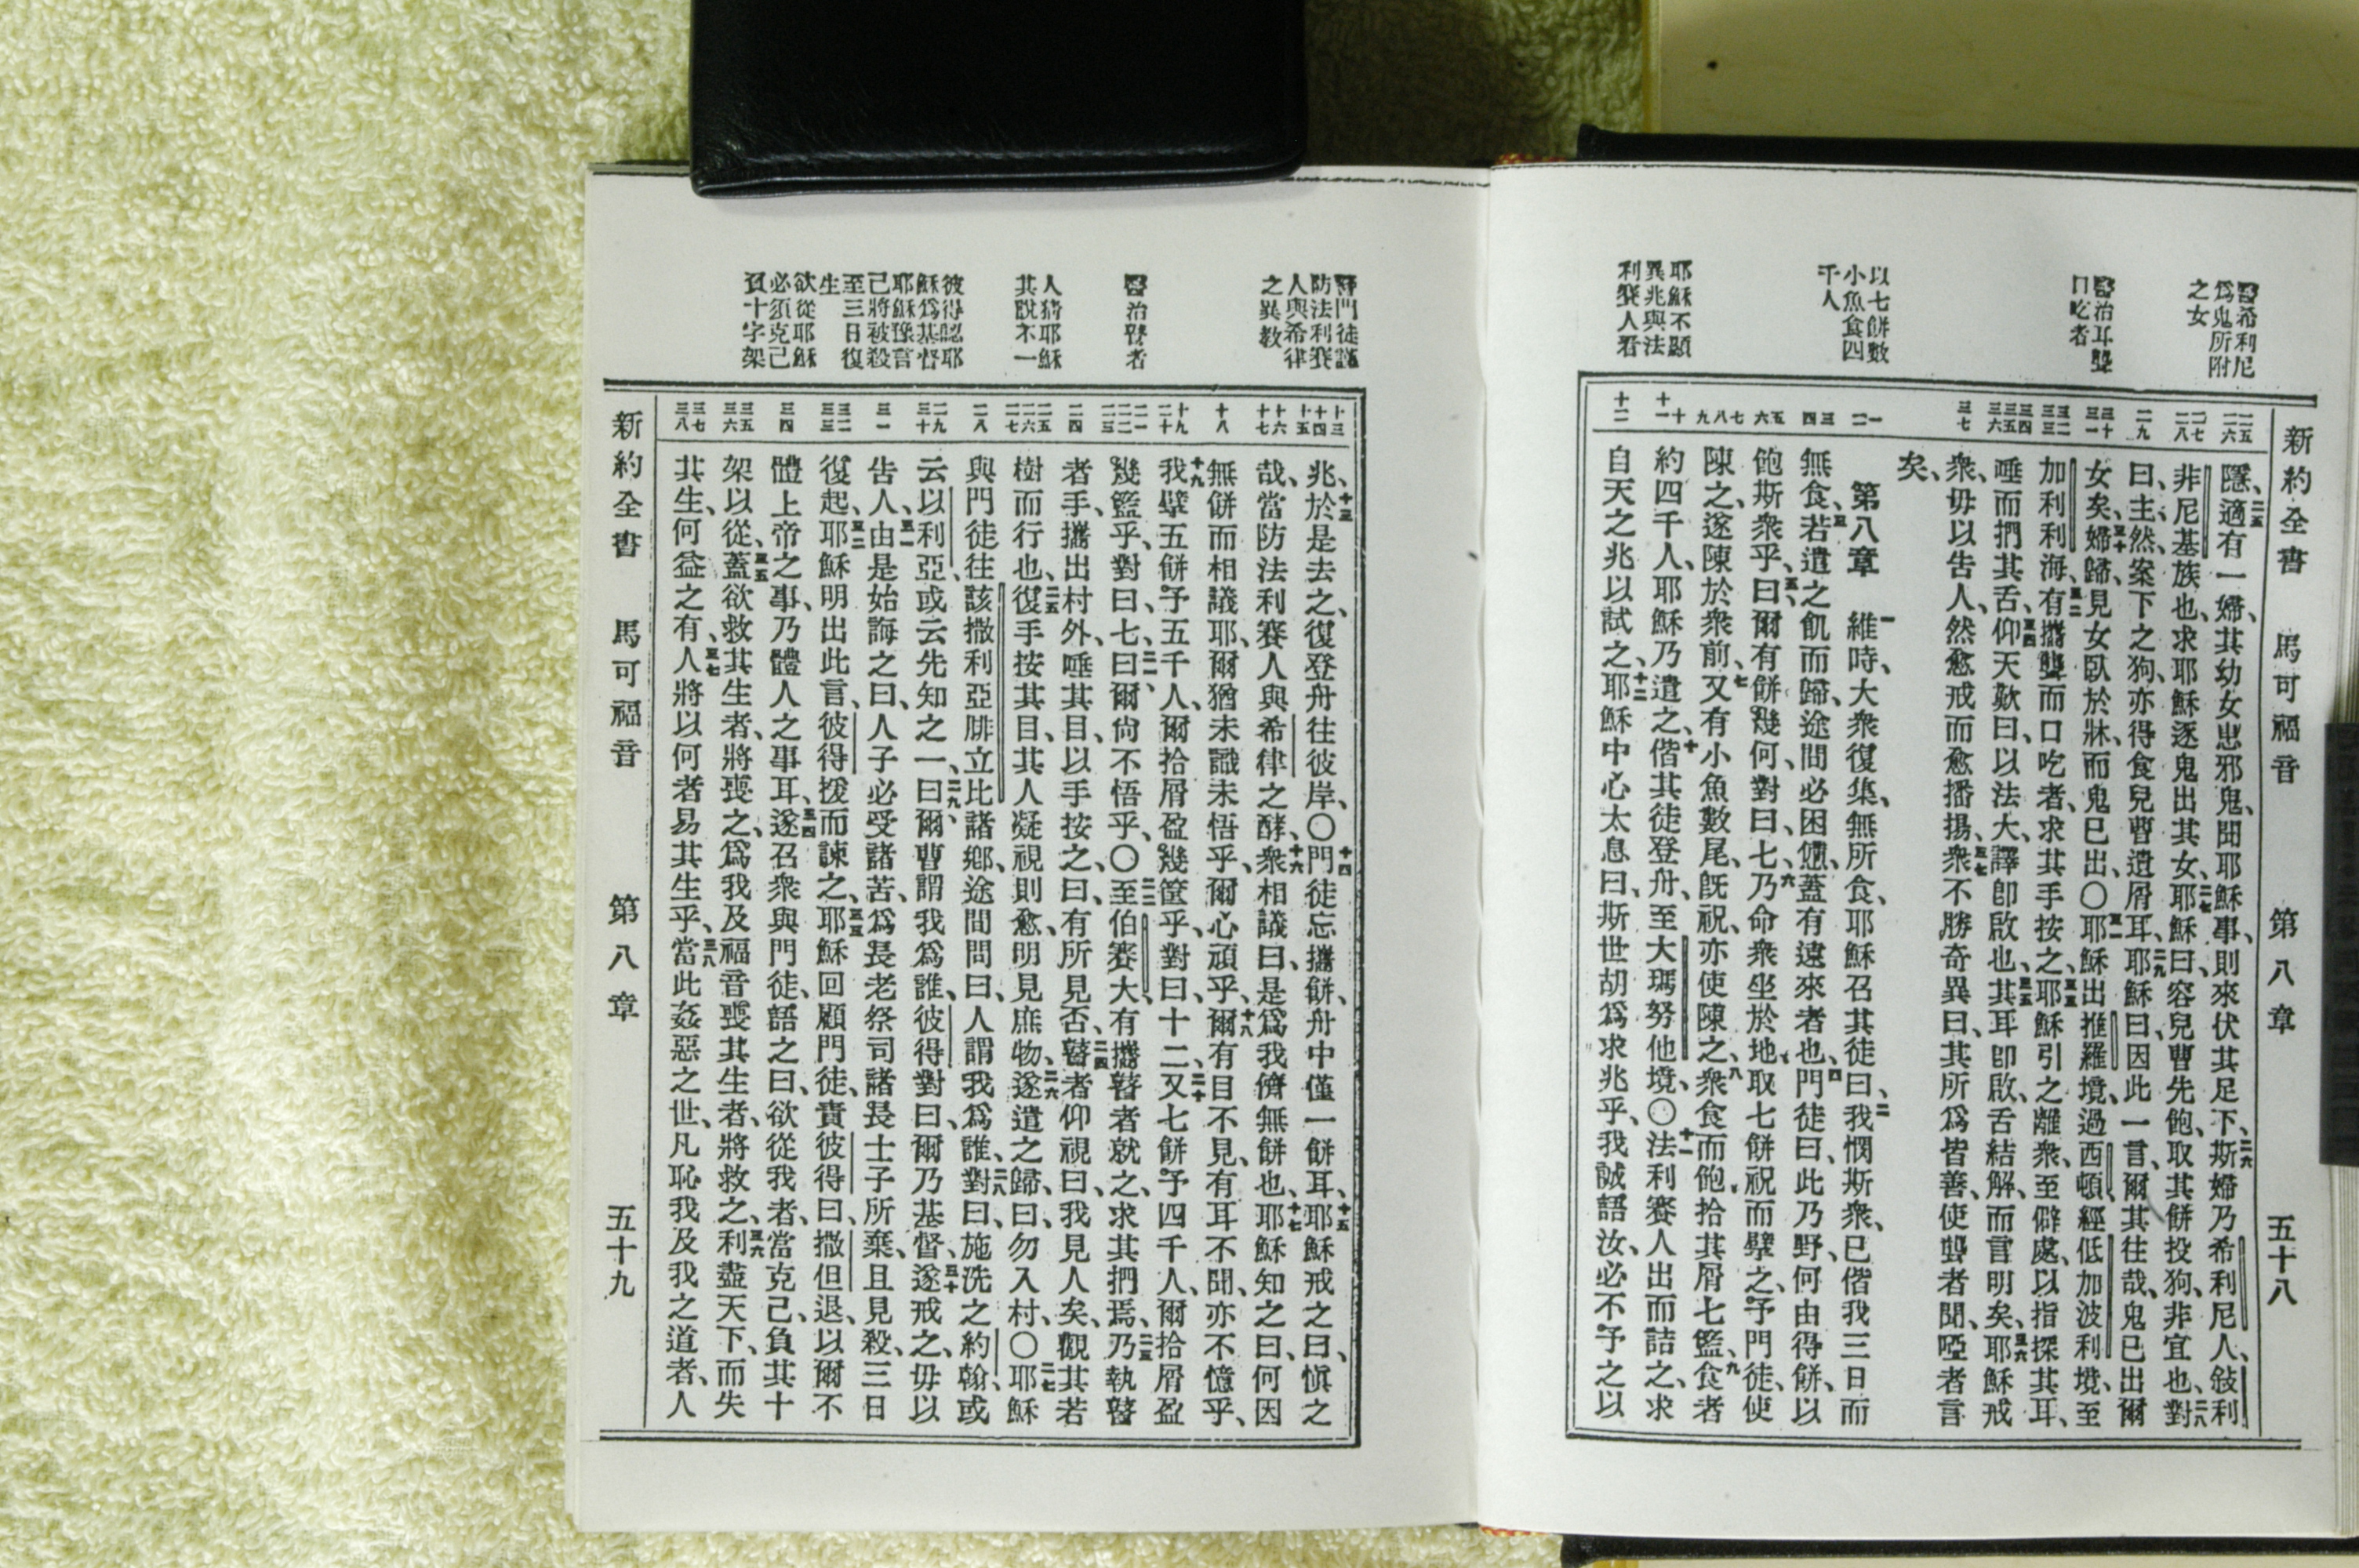 醫希利尼
爲鬼所附
之女
醫治耳聾
口吃者
以七餅數
小魚食四
千人
耶穌不顯
異兆與法
利賽人看
新約全書 馬可福音 第八章 五十八
二五
二六
二七
二八
二九
三十
三一
三二
三三
三四
三五
三六
三七
一
二
三
四
五
六
七
八
九
十
十一
十二
隱、二五適有一婦、其幼女患邪鬼、聞耶穌事、則來伏其足下、二六斯婦乃希利尼人、敍利
非尼基族也、求耶穌逐鬼出其女、二七耶穌曰、容兒曹先飽、取其餅投狗、非宜也、二八對
曰、主、然、案下之狗、亦得食兒曹遺屑耳、二九耶穌曰、因此一言、爾其往哉、鬼已出爾
女矣、三十婦歸、見女臥於牀、而鬼已出、〇三一耶穌出推羅境、過西頓、經低加波利境、至
加利利海、三二有攜聾而口吃者、求其手按之、三三耶穌引之離衆、至僻處、以指探其耳、
唾而捫其舌、三四仰天歎曰、以法大、譯卽啟也、三五其耳卽啟、舌結解、而言明矣、三六耶穌戒
衆、毋以告人、然愈戒而愈播揚、三七衆不勝奇異曰、其所爲皆善、使聾者聞、啞者言
矣、
第八章 一維時、大衆復集、無所食、耶穌召其徒曰、二我憫斯衆、已偕我三日而
無食、三若遣之飢而歸、途間必困憊、蓋有遠來者也、四門徒曰、此乃野、何由得餅、以
飽斯衆乎、五曰、爾有餅幾何、對曰、七、六乃命衆坐於地、取七餅祝而擘之、予門徒、使
陳之、遂陳於衆前、七又有小魚數尾、旣祝、亦使陳之、八衆食而飽、拾其屑七籃、九食者
約四千人、耶穌乃遣之、十偕其徒登舟、至大瑪努他境、〇十一法利賽人出而詰之、求
自天之兆以試之、十二耶穌中心太息曰、斯世胡爲求兆乎、我誠語汝、必不予之以
門徒謹
防法利賽
人與希律
之異教
醫治瞽者
人猜耶穌
其說不一
彼得認耶
穌爲基督
耶穌豫言
己將被殺
至三日復
生
欲從耶穌
必須克己
負十字架
十三
十四
十五
十六
十七
十八
十九
二十
二一
二二
二三
二四
二五
二六
二七
二八
二九
三十
三一
三二
三三
三四
三五
三六
三七
三八
兆、十三於是去之、復登舟往彼岸、〇十四門徒忘攜餅、舟中僅一餅耳、十五耶穌戒之曰、愼之
哉、當防法利賽人與希律之酵、十六衆相議曰、是爲我儕無餅也、十七耶穌知之曰、何因
無餅而相議耶、爾猶未識未悟乎、爾心頑乎、十八爾有目不見、有耳不聞、亦不憶乎、
十九我擘五餅予五千人、爾拾屑盈幾筐乎、對曰、十二、二十又七餅予四千人、爾拾屑盈
幾籃乎、對曰、七、二一曰、爾尙不悟乎、〇二二至伯賽大、有攜瞽者就之、求其捫焉、二三乃執瞽
者手、攜出村外、唾其目、以手按之、曰、有所見否、二四瞽者仰視曰、我見人矣、觀其若
樹而行也、二五復手按其目、其人凝視則愈、明見庶物、二六遂遣之歸、曰、勿入村、〇二七耶穌
與門徒往該撒利亞腓立比諸鄉、途間問曰、人謂我爲誰、二八對曰、施洗之約翰、或
云以利亞、或云先知之一、二九曰、爾曹謂我爲誰、彼得對曰、爾乃基督、三十遂戒之、毋以
告人、三一由是始誨之曰、人子必受諸苦、爲長老祭司諸長士子所棄、且見殺、三日
復起、三二耶穌明出此言、彼得援而諫之、三三耶穌回顧門徒、責彼得曰、撒但退、以爾不
體上帝之事、乃體人之事耳、三四遂召衆與門徒、語之曰、欲從我者、當克己、負其十
架以從、三五蓋欲救其生者、將喪之、爲我及福音喪其生者、將救之、三六利盡天下、而失
其生、何益之有、三七人將以何者易其生乎、三八當此姦惡之世、凡恥我及我之道者、人
新約全書 馬可福音 第八章 五十九